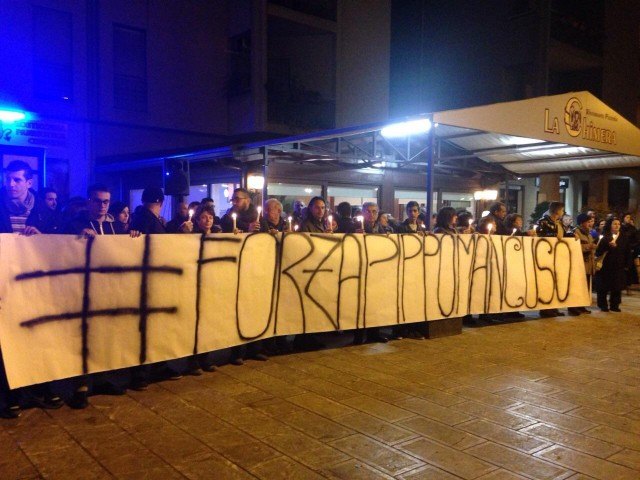 LA CHIMERA
#FORZAPIPPOMANCUSO